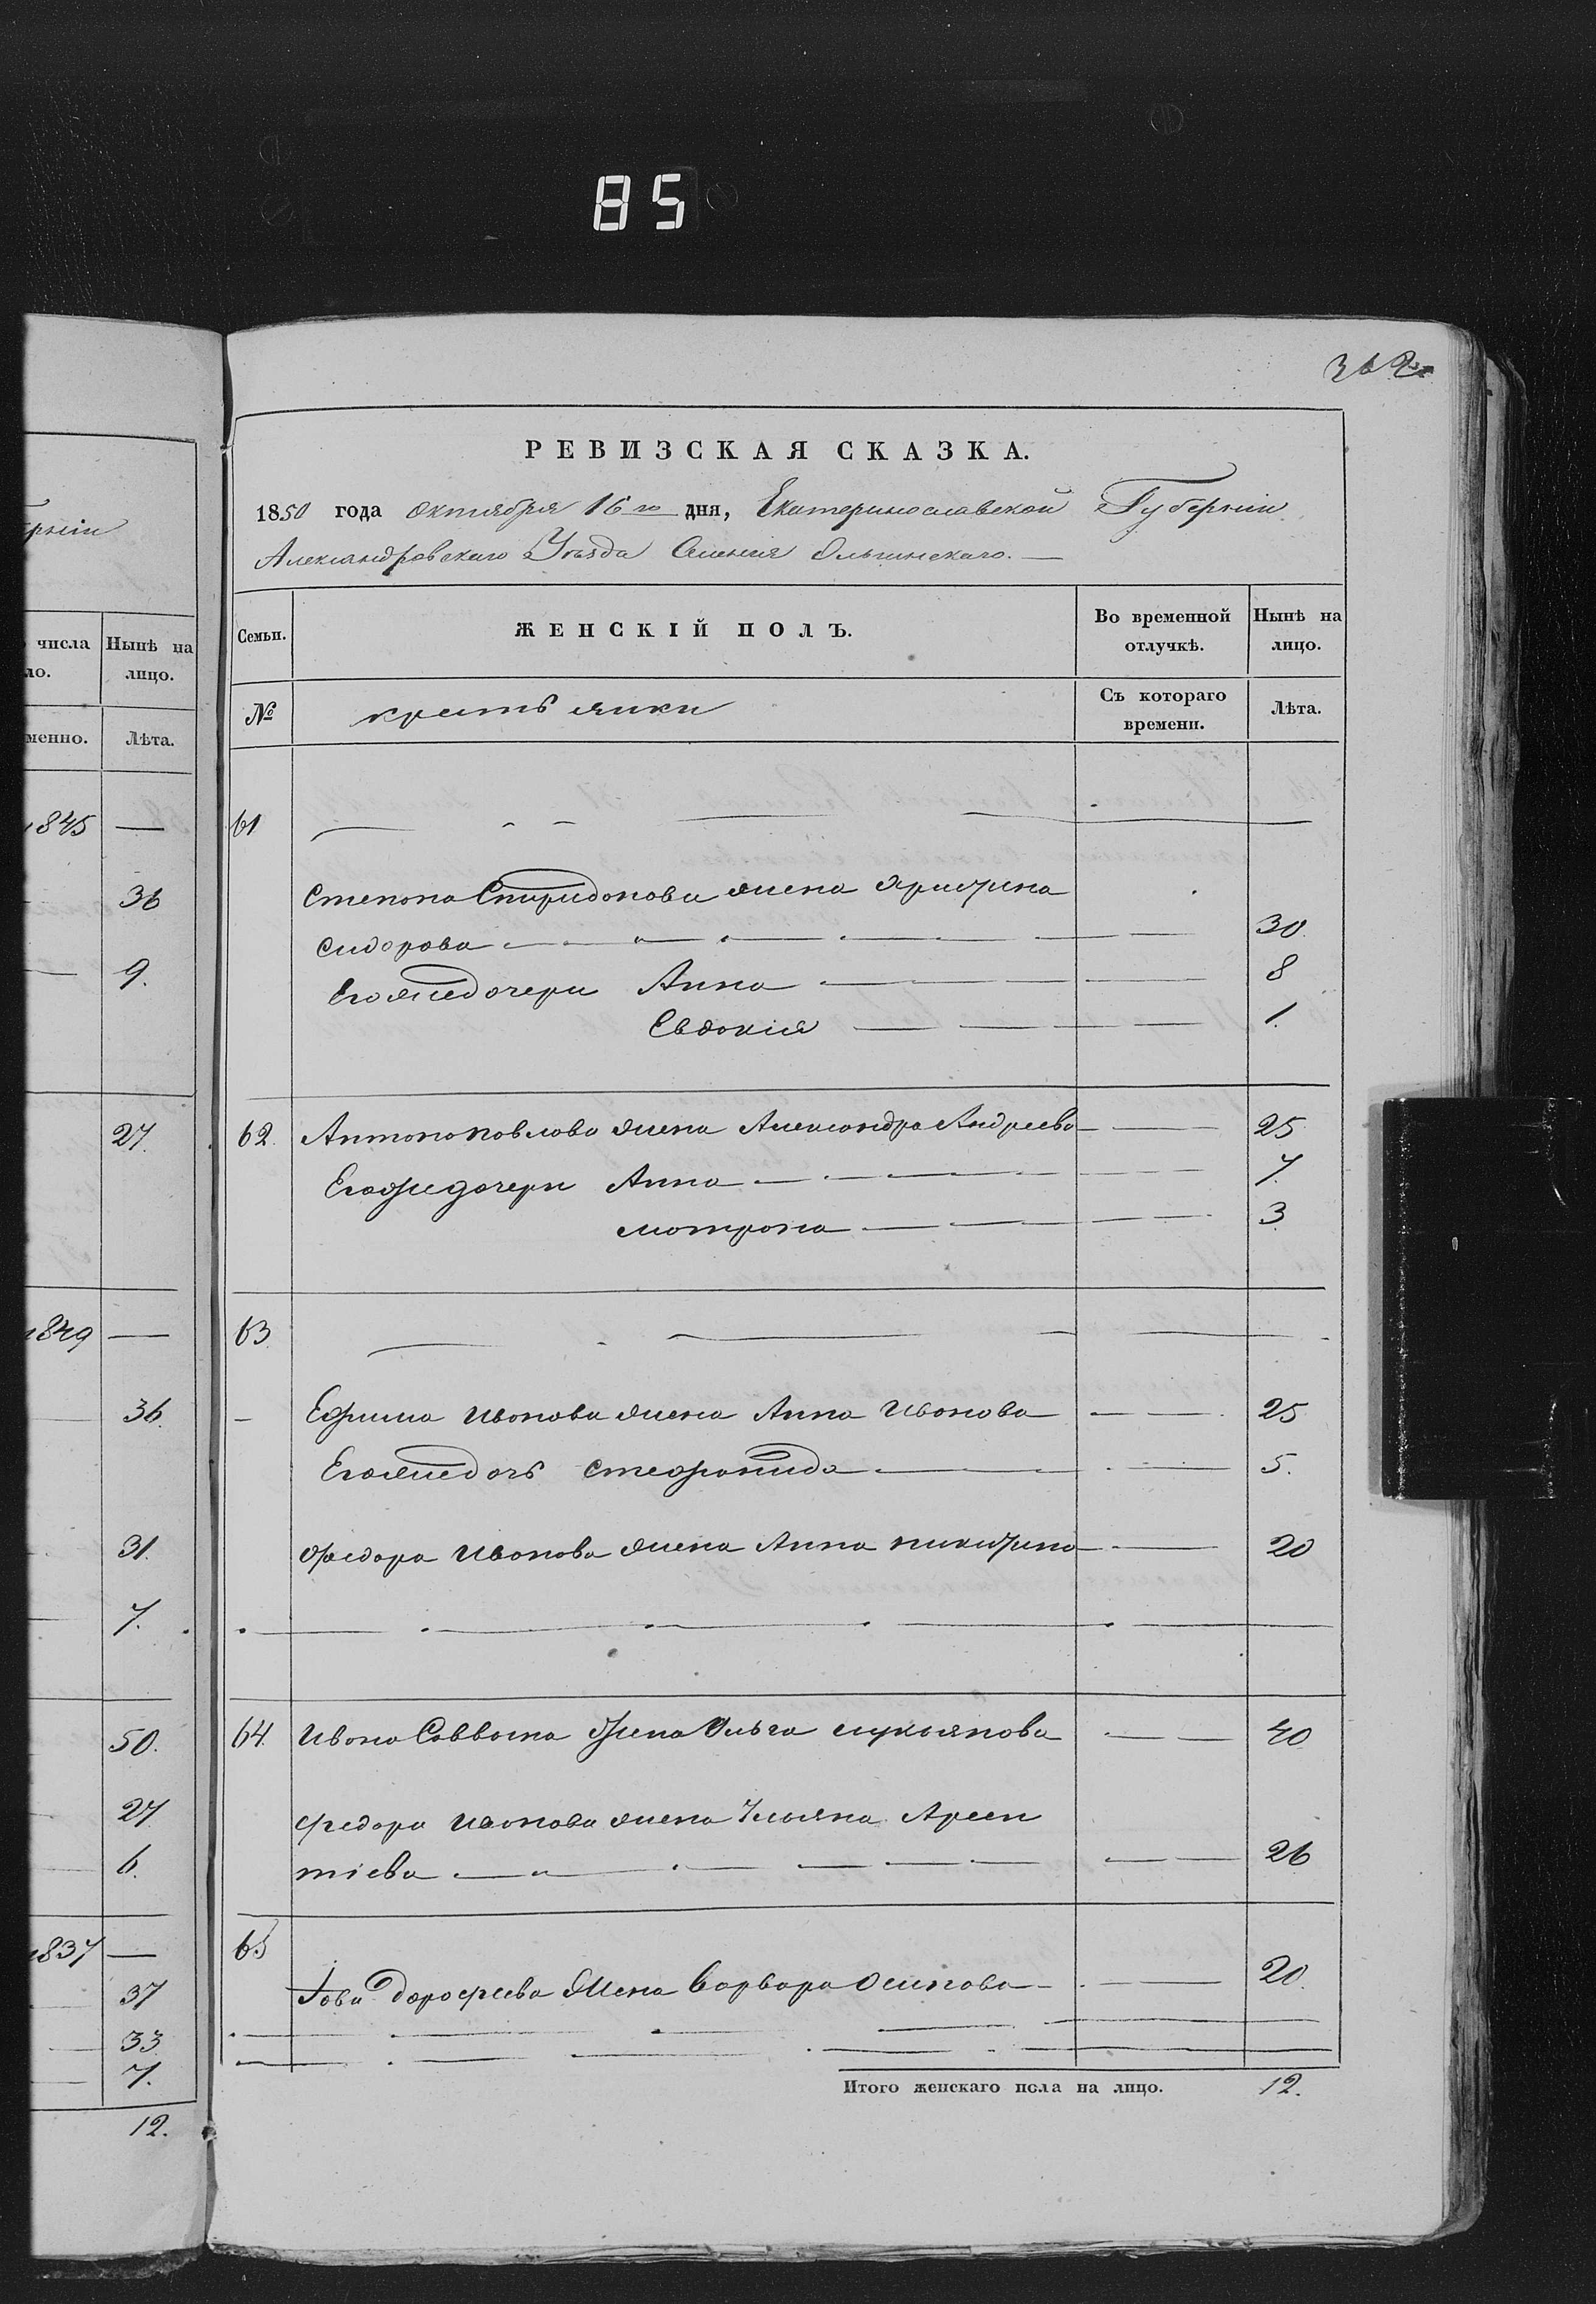 85
362
РЕВИЗСКАЯ СКАЗКА.
1850 года октября 16го дня, Екатеринославской Губерніи
Александровскаго Уѣзда Селенія Ольгинскаго.
Семьи. ЖЕНСКІЙ ПОЛЪ. Во временной отлучкѣ. Нынѣ на лицо.
№ крестьянки Съ котораго времени. Лѣта.
61
Степана Спиридонова жена Христина
Сидорова 30
Его же дочери Анна 8
Евдокія 1.
62. Антона Павлова жена Александра Андреева 25
Его же дочери Анна 7.
Мотрона 3
63
Ефима Иванова жена Анна Иванова 25
Его же дочь Стефанида 5.
Федора Иванова жена Анна Никитина 20
64. Ивана Саввина жена Ольга Лукьянова 40
Федора Иванова жена Ульяна Арсен
тіева 26
65
Іова Дорофеева жена Варвара Осипова 20.
Итого женскаго пола на лицо. 12.
рніи
числа Нынѣ на
ло. лицо.
менно. Лѣта.
1845 —
36
9.
27.
1849 —
36.
31.
7.
50.
27
6.
1837 —
37
33
7.
12.